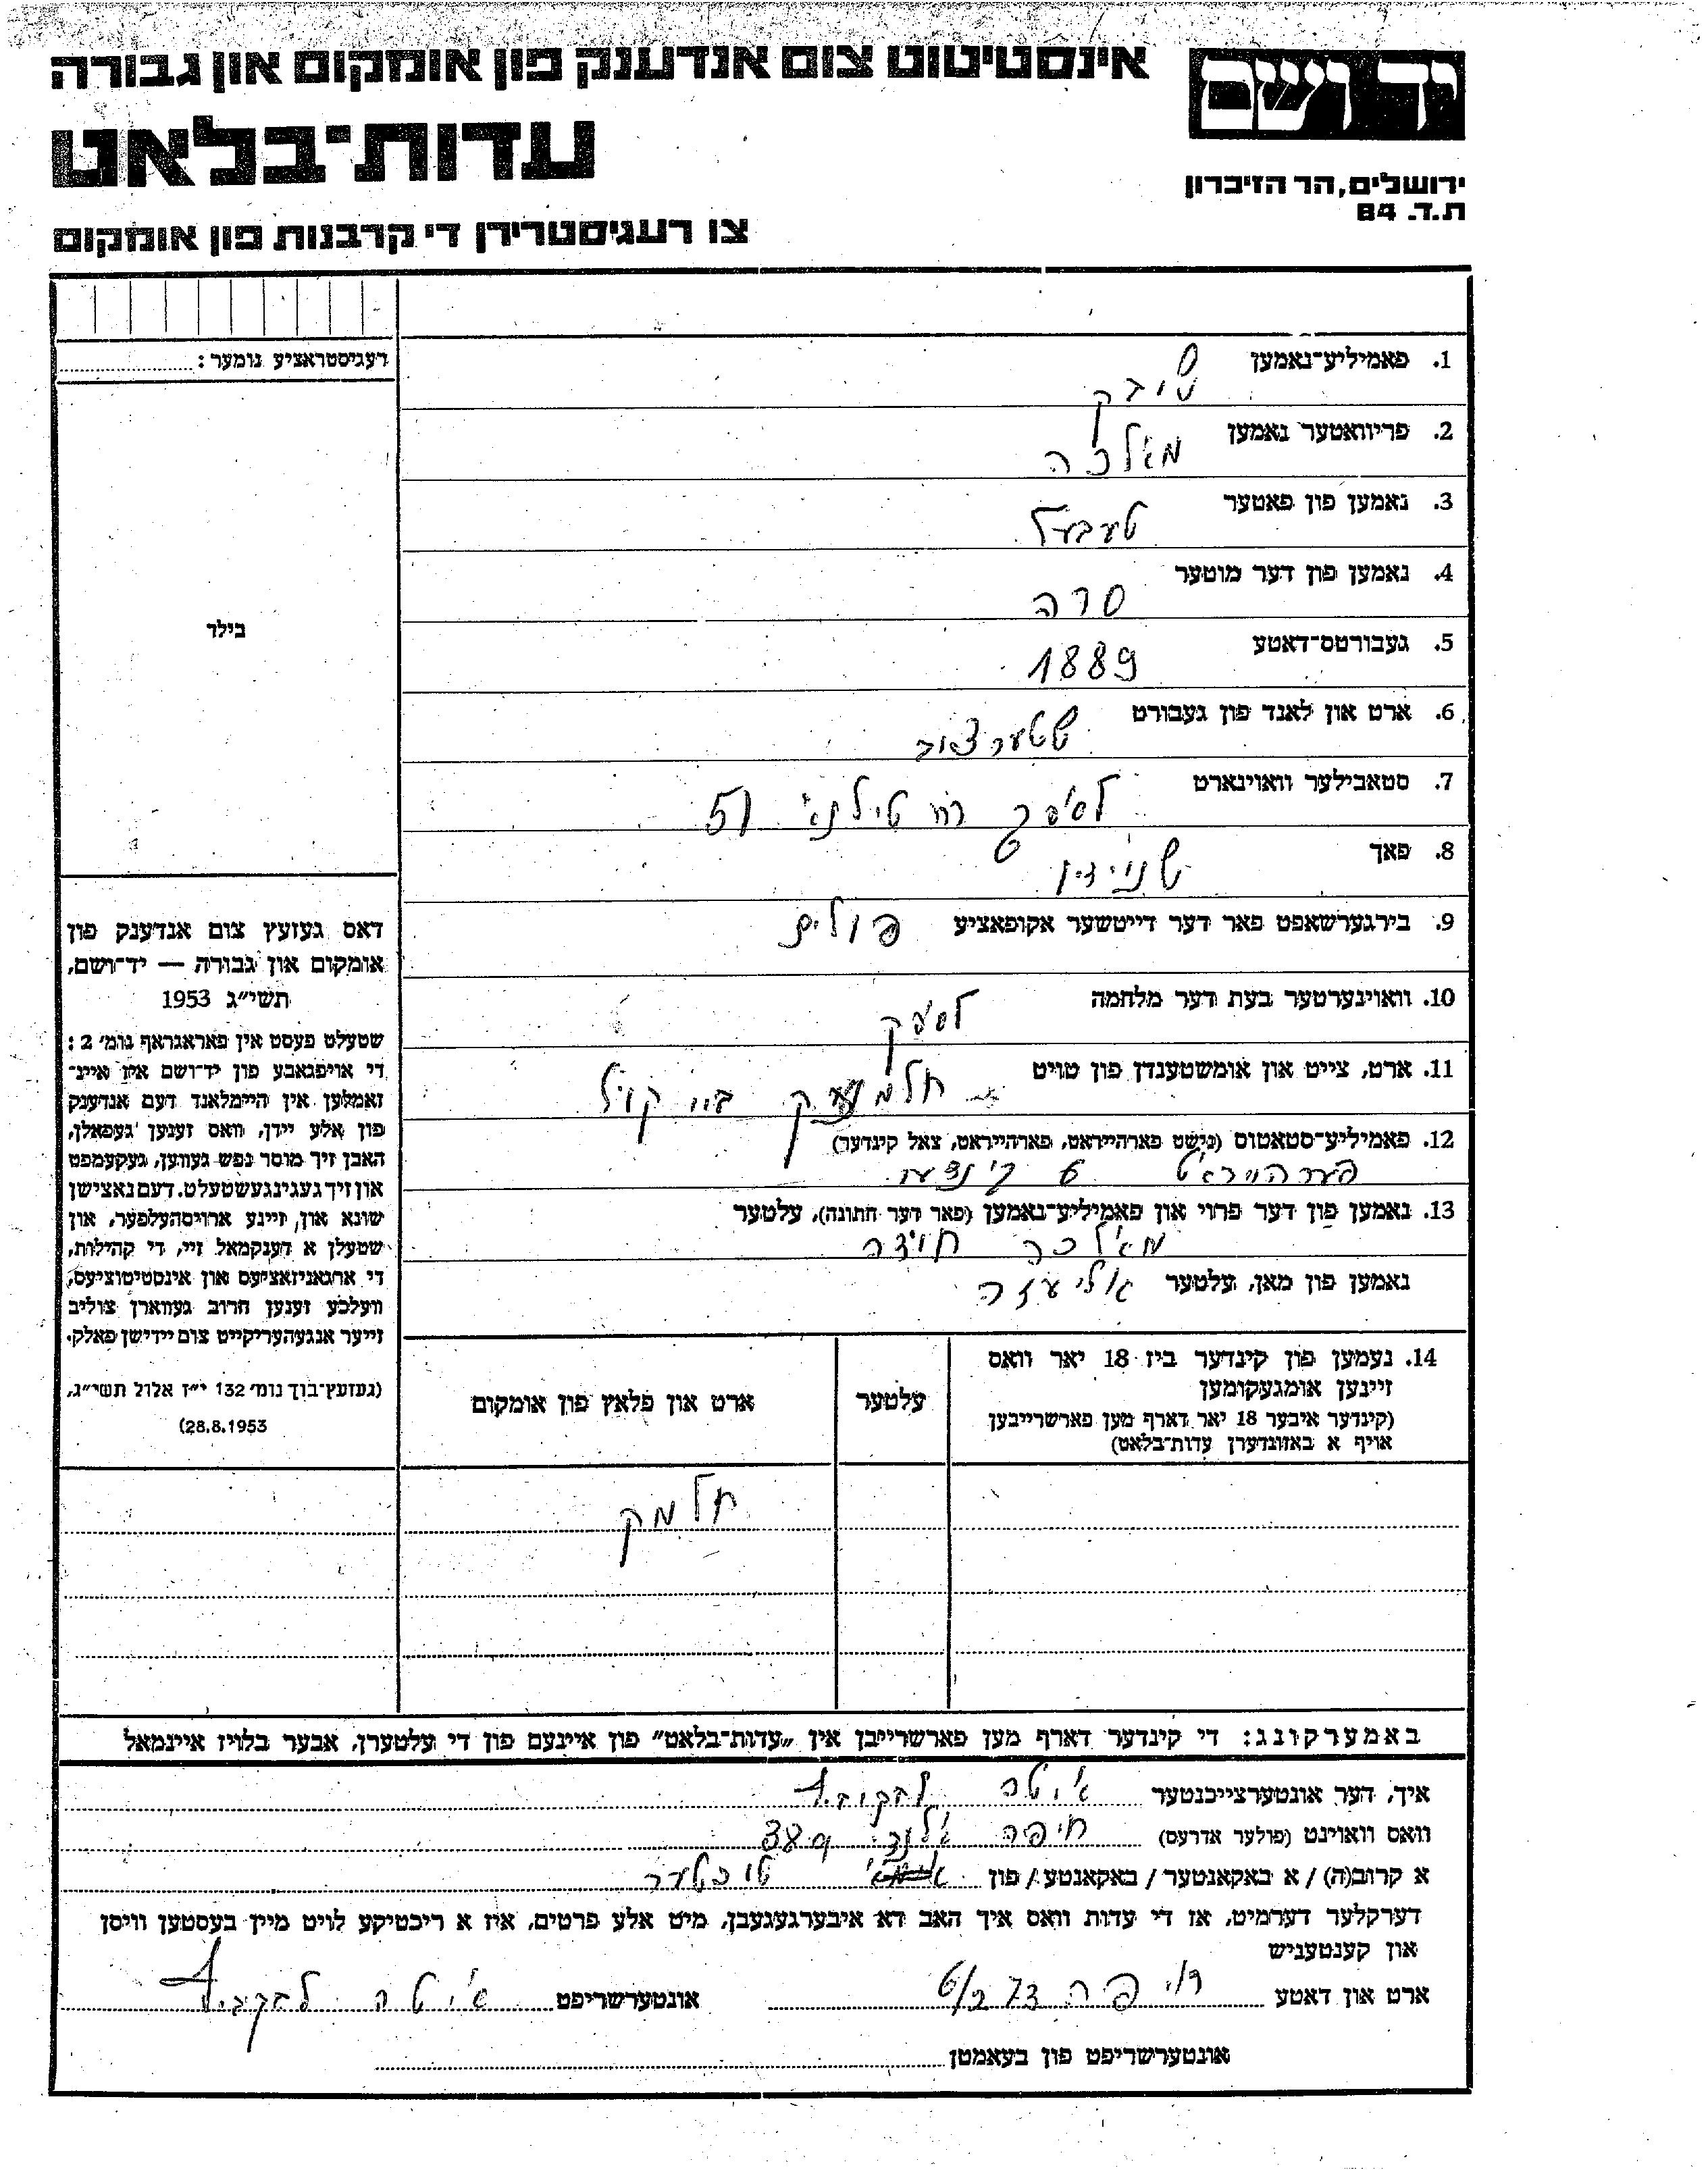 אינסטיטוט צום אנדענק פון אומקום און גבורה
יד ושם
עדות־בלאט
ירושלים, הר הזיכרון
ת.ד. 84
צו רעגיסטרירן די קרבנות פון אומקום
רעגיסטראציע נומער:
בילד
1. פאמיליע־נאמען
2. פריוואטער נאמען
מאלכה
3. נאמען פון פאטער
טעבעל
4. נאמען פון דער מוטער
סרה
5. געבורטס־דאטע
1889
6. ארט און לאנד פון געבורט
שטערצוב
7. סטאבילער וואוינארט
לאסק 51
8. פאך
9. בירגערשאפט פאר דער דייטשער אקופאציע פולים
10. וואוינערטער בעת דער מלחמה
לאסק
11. ארט, צייט און אומשטענדן פון טויט
ביי קויל
12. פאמיליע־סטאטוס (נישט פארהייראט, פארהייראט, צאל קינדער)
13. נאמען פון דער פרוי און פאמיליע־נאמען (פאר דער חתונה), עלטער
מאלכה
נאמען פון מאן, עלטער
14. נעמען פון קינדער ביז 18 יאר וואס
זיינען אומגעקומען
(קינדער איבער 18 יאר דארף מען פארשרייבן
אויף א באזונדערן עדות־בלאט)
עלטער
ארט און פלאץ פון אומקום
חלמק
דאס געזעץ צום אנדענק פון
אומקום און גבורה — יד־ושם,
תשי״ג 1953
שטעלט פעסט אין פאראגראף נומ׳ 2:
די אויפגאבע פון יד־ושם איז איינ־
זאמלען אין היימלאנד דעם אנדענק
פון אלע יידן, וואס זענען געפאלן,
האבן זיך מוסר נפש געווען, געקעמפט
און זיך געגינגעשטעלט דעם נאצישן
שונא און זיינע ארויסהעלפער, און
שטעלן א דענקמאל זיי, די קהילות,
די ארגאניזאציעס און אינסטיטוציעס,
וועלכע זענען חרוב געווארן צוליב
זייער אנגעהעריקייט צום יידישן פאלק.
(געזעץ־בוך נומ׳ 132 י״ז אלול תשי״ג,
28.8.1953)
באמערקונג: די קינדער דארף מען פארשרייבן אין „עדות־בלאט״ פון איינעם פון די עלטערן, אבער בלויז איינמאל
איך, דער אונטערצייכנטער איטה
וואס וואוינט (פולער אדרעס) חיפה
א קרוב(ה) / א באקאנטער / באקאנטע / פון טוכטער
דערקלער דערמיט, אז די עדות וואס איך האב דא איבערגעגעבן, מיט אלע פרטים, איז א ריכטיקע לויט מיין בעסטען וויסן
און קענטעניש
ארט און דאטע חיפה 6/2 73 אונטערשריפט איטה
אונטערשריפט פון בעאמטן